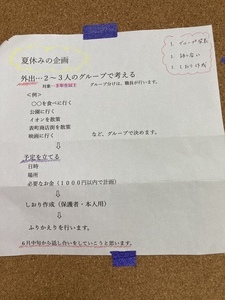 夏休みの企画
外出…２～３人のグループで考える
グループ分けは、職員が行います。
＜例＞
〇〇を食べに行く
公園に行く
イオンを散策
表町商店街を散策
映画に行く
など、グループで決めます。
⇩
予定を立てる
日時
場所
必要なお金（１０００円以内で計画）
⇩
しおり作成（保護者・本人用）
⇩
ふりかえりを行います。
６月中旬から話し合いをしていこうと思います。
1.
2.
3. しおり作成